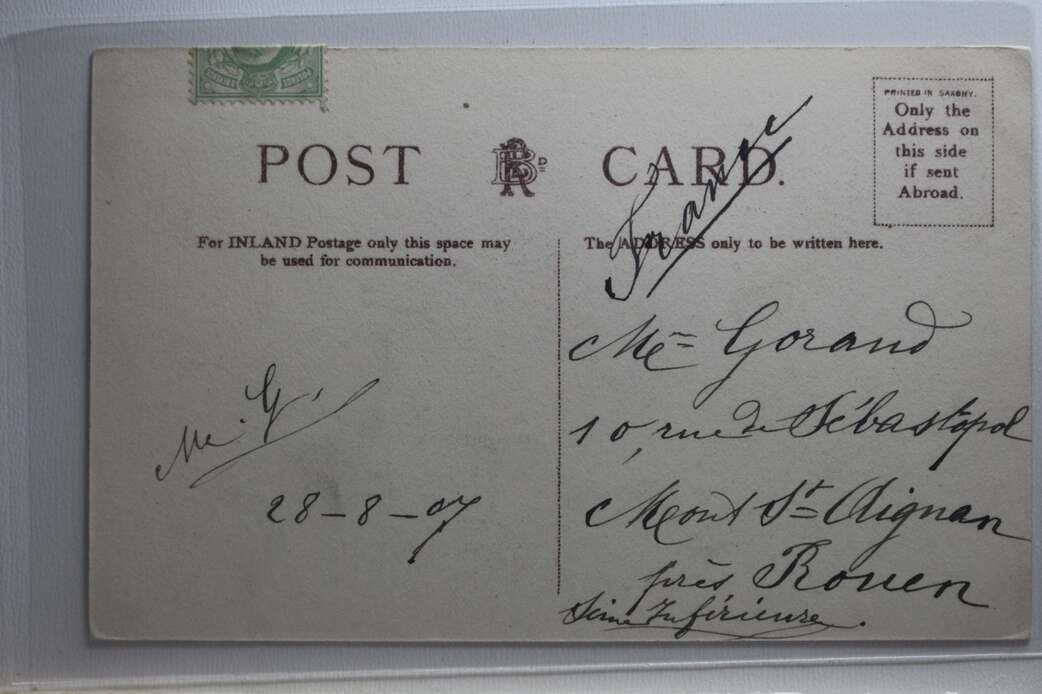 POST CARD.
PRINTED IN SAXONY.
Only the
Address on
this side
if sent
Abroad.
For INLAND Postage only this space may
be used for communication.
The ADDRESS only to be written here.
France
Me G.
28-8-07
Me Gorand
10, rue de Sébastopol
Mont St Aignan
près Rouen
Seine Inférieure.